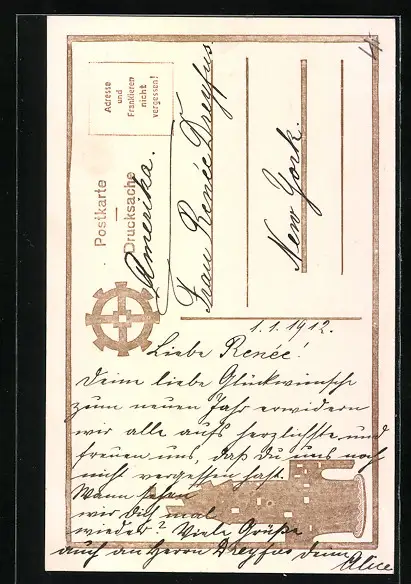 Adresse
und
Frankieren
nicht
vergessen!
Postkarte
Drucksache
Amerika.
Frau Renée Dreyfus
New York.
1.1.1912.
Liebe Renée!
Deine liebe Glückwünsche
zum neuen Jahr erwidern
wir alle aufs herzlichste und
freuen uns, daß du uns noch
nicht vergessen hast.
Wann sehen
wir dich mal
wieder? Viele Grüße
auch an Herrn Dreyfus deine
Alice